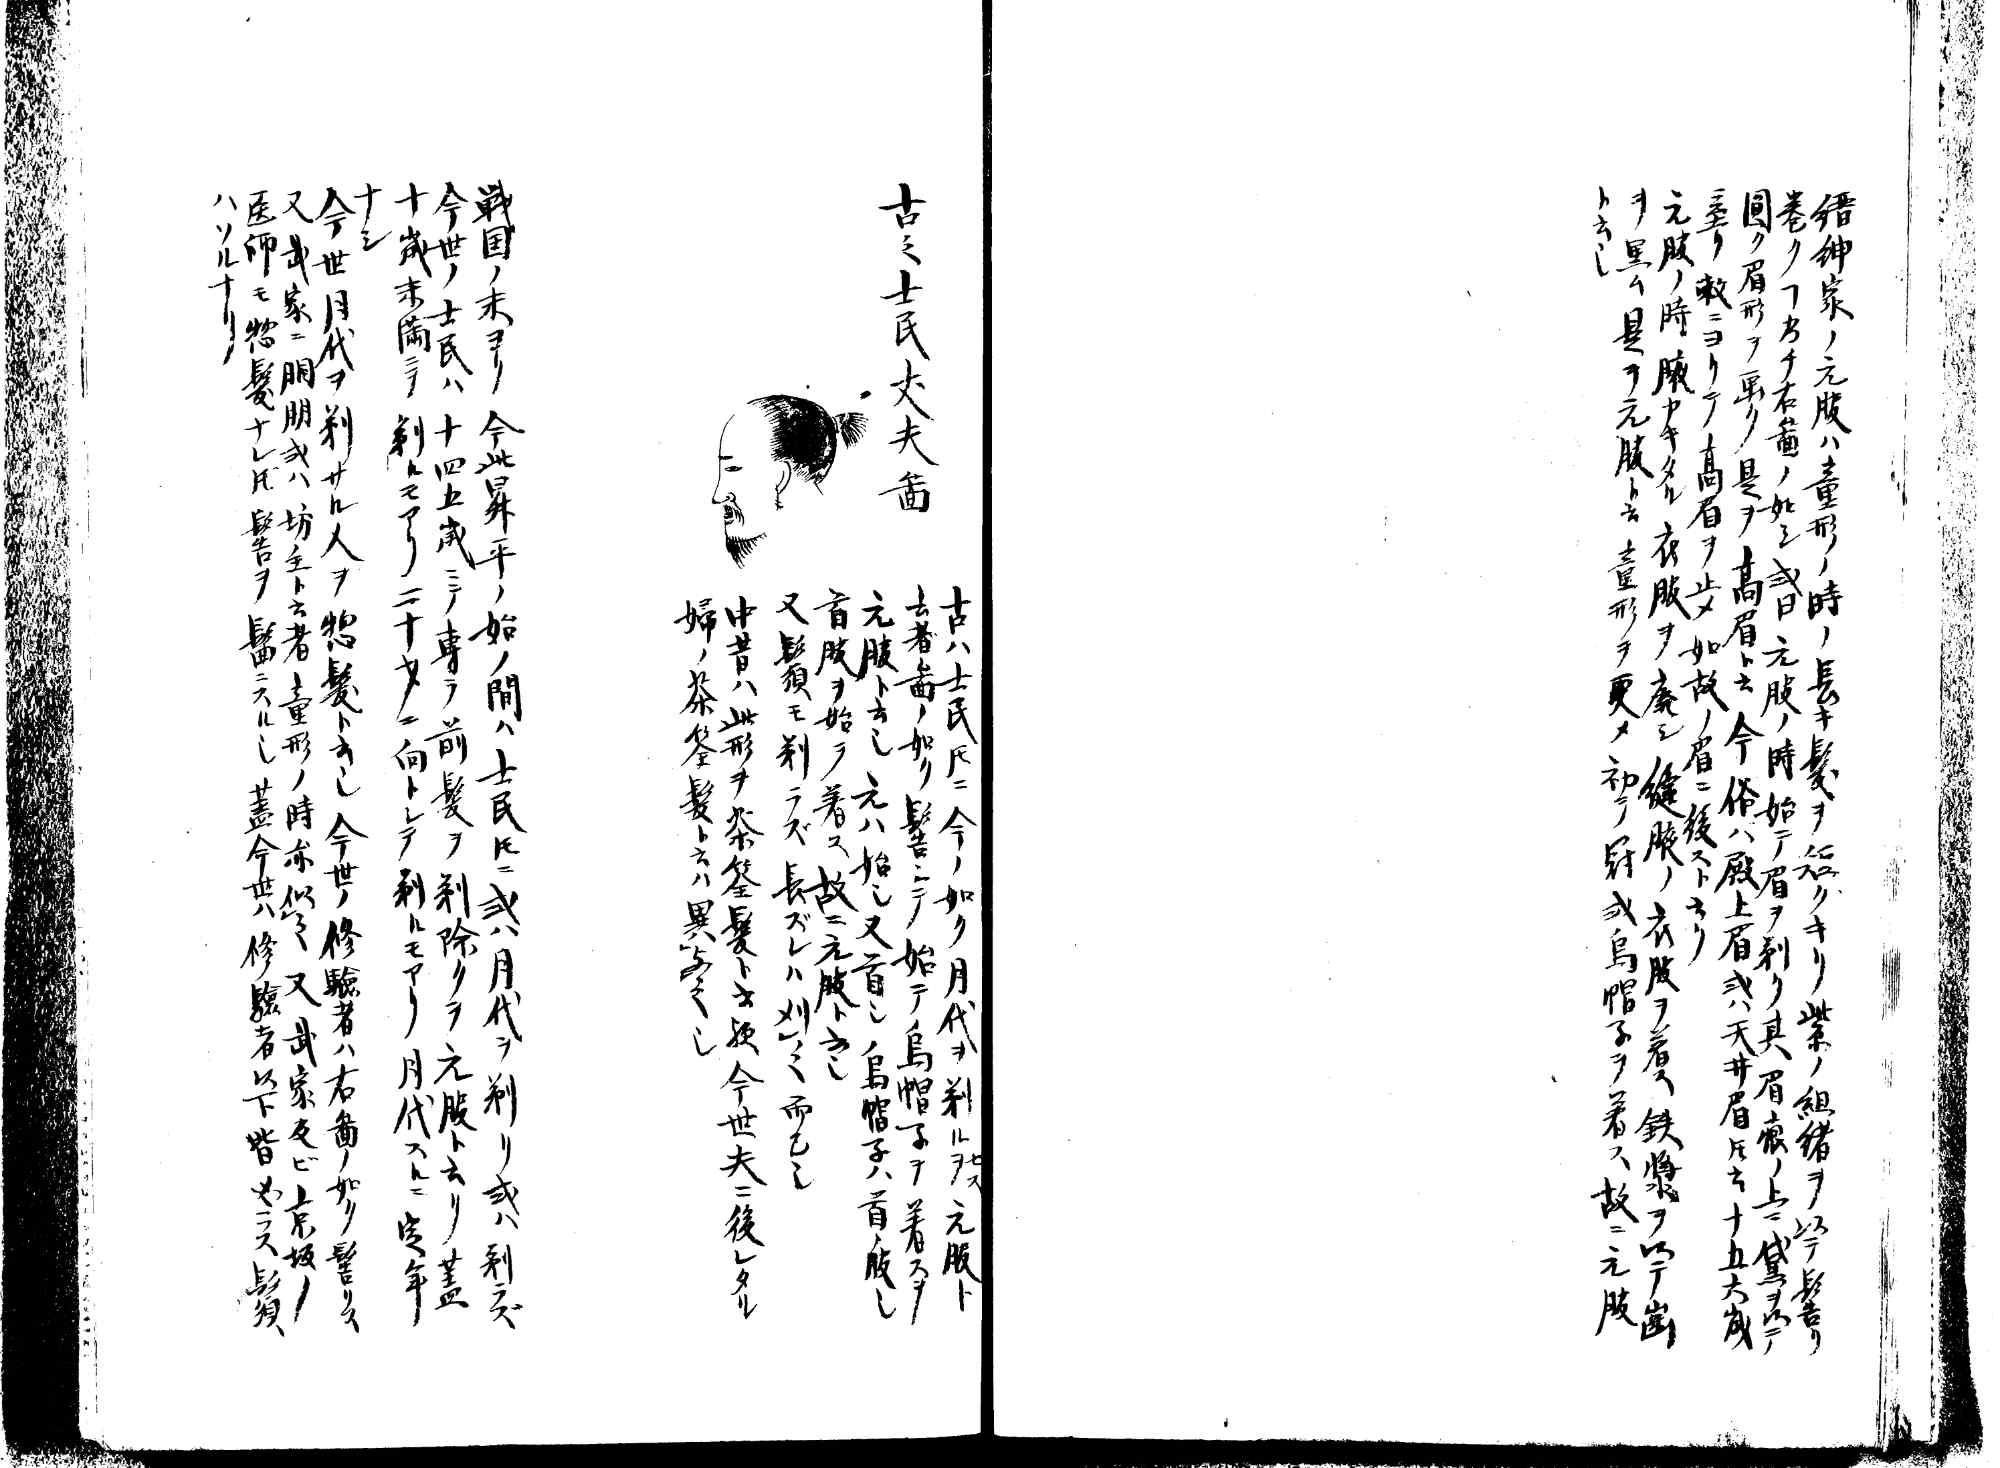 縉紳家ノ元服ハ童形ノ時ノ長キ髪ヲ短クキリ紫ノ組緒ヲ以テ髻リ
巻クヿ乃チ右圖ノ如シ或曰元服ノ時始テ眉ヲ剃リ其眉痕ノ上ニ黛ヲ以テ
圓ク眉形ヲ画ク是ヲ高眉ト云今俗ハ殿上眉或ハ天井眉氏云十五六歳
ニ至リ勅ニヨリテ高眉ヲ止メ如故ノ眉ニ復スト云リ
元服ノ時腋アキタル衣服ヲ廃シ縫腋ノ衣服ヲ着ス鉄漿ヲ以テ歯
ヲ黒ム是ヲ元服ト云童形ヲ更メ初テ冠或烏帽子ヲ着ス故ニ元服
ト云也
古之士民丈夫圖
古ハ士民トモニ今ノ如ク月代ヲ剃ルヿヲセス元服ト
云者圖ノ如ク髻ニテ始テ烏帽子ヲ着スヲ
元服ト云也元ハ始也又首也烏帽子ハ首ノ服也
首服ヲ始テ着ス故ニ元服ト云也
又鬚モ剃ラズ長ズレハ刈之而已也
中昔ハ此形ヲ茶筌髪ト云歟今世夫ニ後レタル
婦ノ茶筌髪ト云ハ異之也
戦国ノ末ヨリ今此昇平ノ始ノ間ハ士民トモニ或ハ月代ヲ剃リ或ハ剃ラズ
今世ノ士民ハ十四五歳ニテ専ラ前髪ヲ剃除クヲ元服ト云リ蓋
十歳未満ニテ剃ルモアリ二十才ニ向トシテ剃ルモアリ月代スルニ定年
ナシ
今世月代ヲ剃サル人ヲ惣髪ト云也今世ノ修験者ハ右圖ノ如ク髻リス
又武家ニ同朋或ハ坊主ト云者童形ノ時亦似之又武家及ビ京坂ノ
医師モ惣髪ナレトモ髻ヲ髷ニスル也蓋今世ハ修験者以下皆必ラス鬚
ハソルナリ